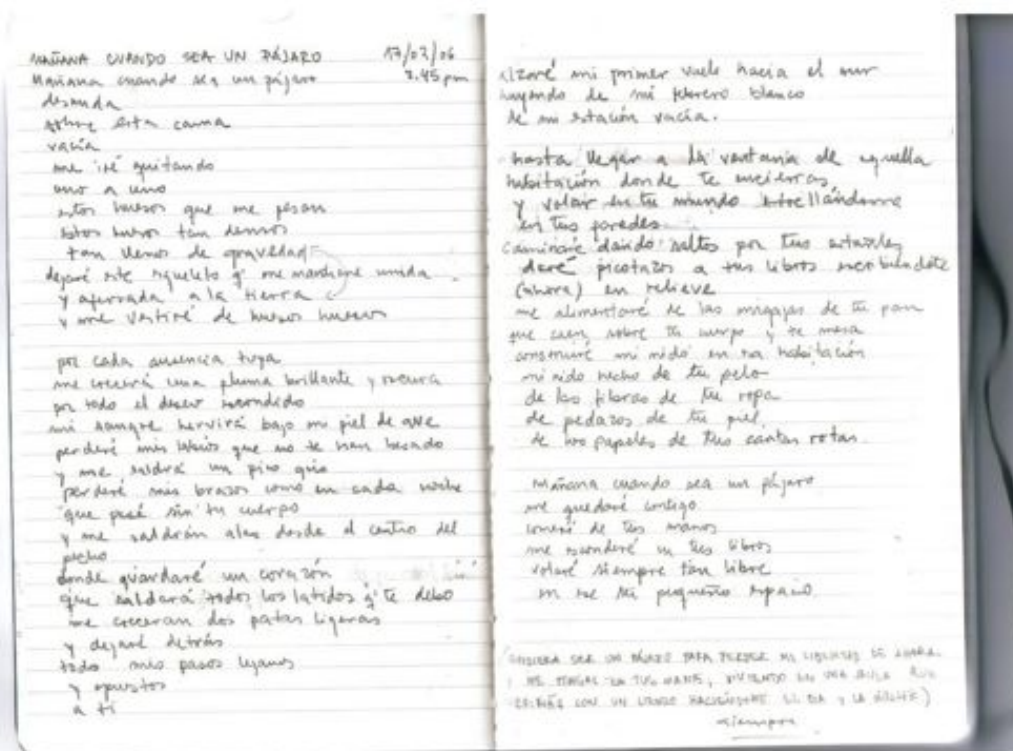 MAÑANA CUANDO SEA UN PÁJARO 17/02/06
Mañana cuando sea un pájaro 7.45 pm
desnuda
sobre esta cama
vacía
me iré quitando
uno a uno
estos huesos que me pesan
estos huesos tan densos
tan llenos de gravedad
dejaré este esqueleto q' me mantiene unida
y aferrada a la tierra
y me vestiré de huesos huecos
por cada ausencia tuya
me crecerá una pluma brillante y oscura
por todo el deseo escondido
mi sangre hervirá bajo mi piel de ave
perderé mis labios que no te han besado
y me saldrá un pico gris
perderé mis brazos como en cada noche
que pasé sin tu cuerpo
y me saldrán alas desde el centro del
pecho
donde guardaré un corazón
que saldará todos los latidos q' te debo
me crecerán dos patas ligeras
y dejaré detrás
todo mis pasos lejanos
y opuestos
a ti
alzaré mi primer vuelo hacia el sur
huyendo de mi febrero blanco
de mi estación vacía.
hasta llegar a la ventana de aquella
habitación donde te encierras
y volar en tu mundo estrellándome
en tus paredes
caminaré dando saltos por tus estantes
daré picotazos a tus libros escribiéndote
(ahora) en relieve
me alimentaré de las migajas de tu pan
que caen sobre tu cuerpo y tu mesa
construiré mi nido en esa habitación
mi nido hecho de tu pelo
de las fibras de tu ropa
de pedazos de tu piel
de los papeles de tus cartas rotas.
mañana cuando sea un pájaro
me quedaré contigo
comeré de tus manos
me esconderé en tus libros
volaré siempre tan libre
en ese tu pequeño espacio.
QUISIERA SER UN PÁJARO PARA PERDER MI LIBERTAD DE AHORA
ME TENGAS EN TUS MANOS, VIVIENDO EN UNA JAULA QUE
CON UN LIENZO EL DÍA Y LA NOCHE)
siempre